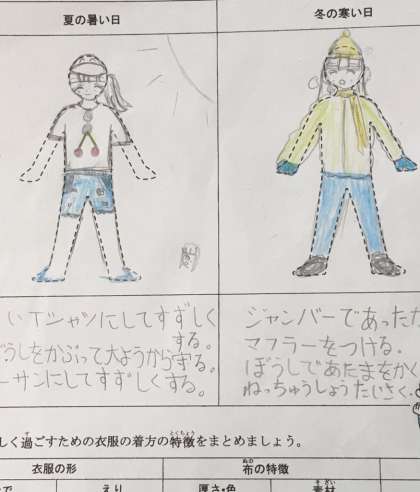 夏の暑い日
冬の寒い日
いTシャツにしてすずしく
する。
うしをかぶって大ようから守る。
ーサンにしてすずしくする。
ジャンバーであったか
マフラーをつける。
ぼうしであたまをかく
ねっちゅうしょうたいさく。
しく過ごすための衣服の着方の特徴をまとめましょう。
衣服の形
布の特徴
えり
厚さ・色
素材